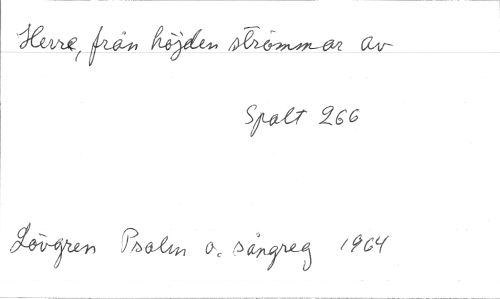 Herre, från höjden strömmar av
Spalt 266
Lövgren Psalm o. sångreg 1964